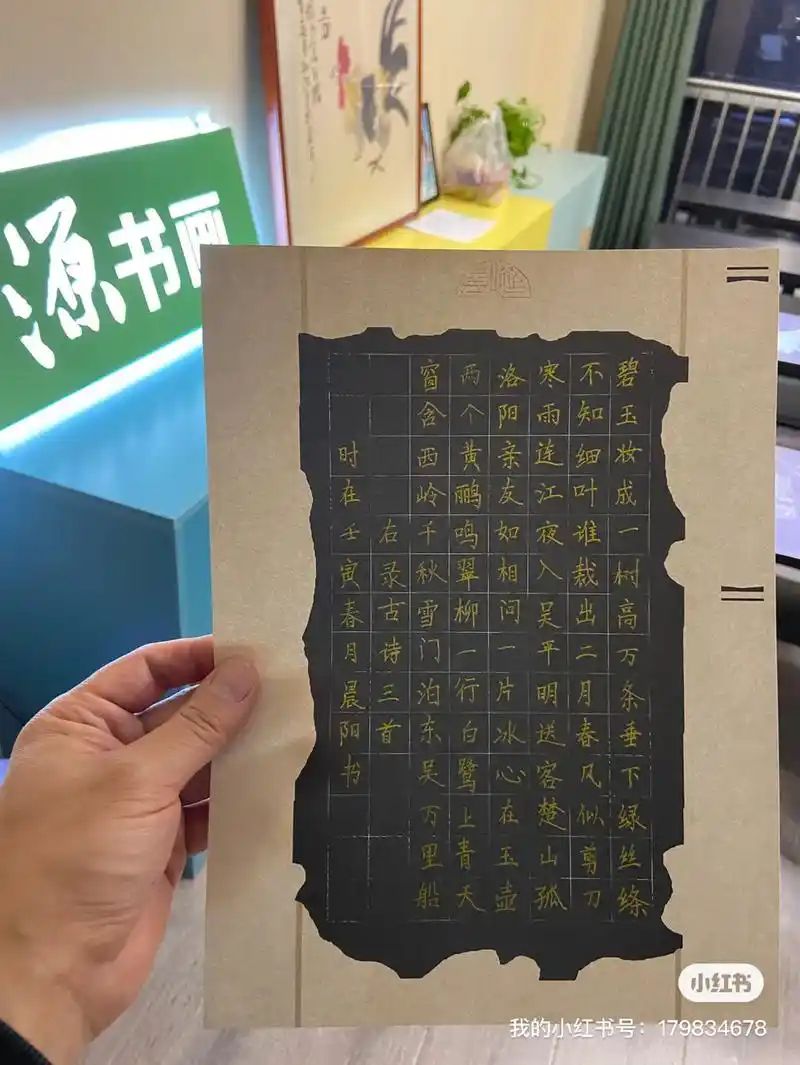 源书画
碧玉妆成一树高万条垂下绿丝绦
不知细叶谁裁出二月春风似剪刀
寒雨连江夜入吴平明送客楚山孤
洛阳亲友如相问一片冰心在玉壶
两个黄鹂鸣翠柳一行白鹭上青天
窗含西岭千秋雪门泊东吴万里船
右录古诗三首
时在壬寅春月晨阳书
小红书
我的小红书号：179834678